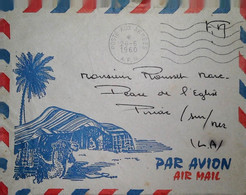 1960
F.M
Monsieur Rousset Marc
Place de l'Eglise
Piriac / sur / mer
(L.A)
PAR AVION
AIR MAIL